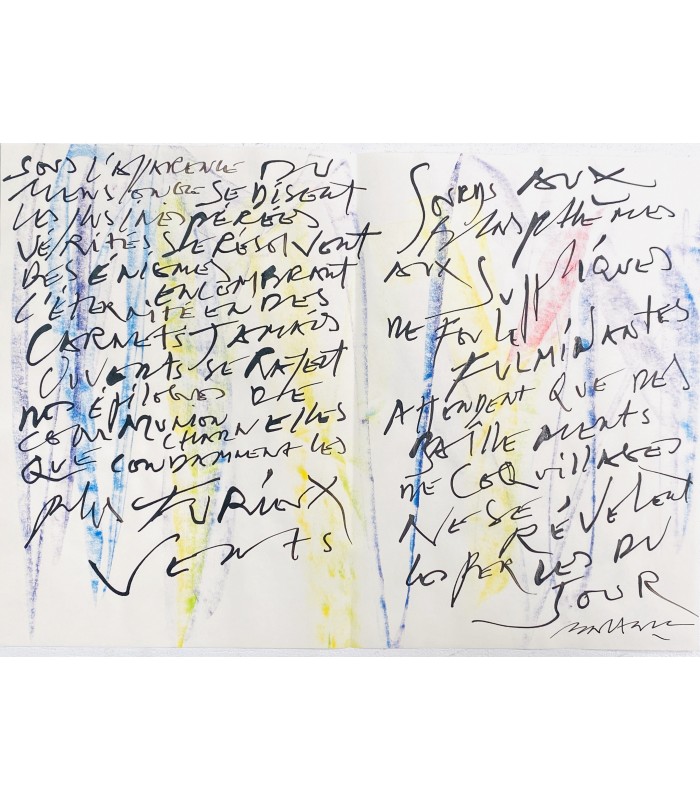 SOUS L'APPARENCE DU
MENSONGE SE DISENT
LES INSINESPÉRÉES
VÉRITÉS SE RÉSOLVENT
DES ÉNIGMES
ENCOMBRANT
L'ÉTERNITÉ EN DES
CARNETS JAMAIS
OUVERTS SE
DES ÉPILOGUES DE
COMMUNION CHARNELLES
QUE CONDAMNENT LES
PLUS FURIEUX
VENTS
SOURDS AUX
BLASPHÈMES
AUX SUPPLIQUES
DE FOULES
FULMINANTES
ATTENDENT QUE DES
BÂILLEMENTS
DE COQUILLAGES
NE SE RÉVÈLENT
LES PERLES DU
JOUR